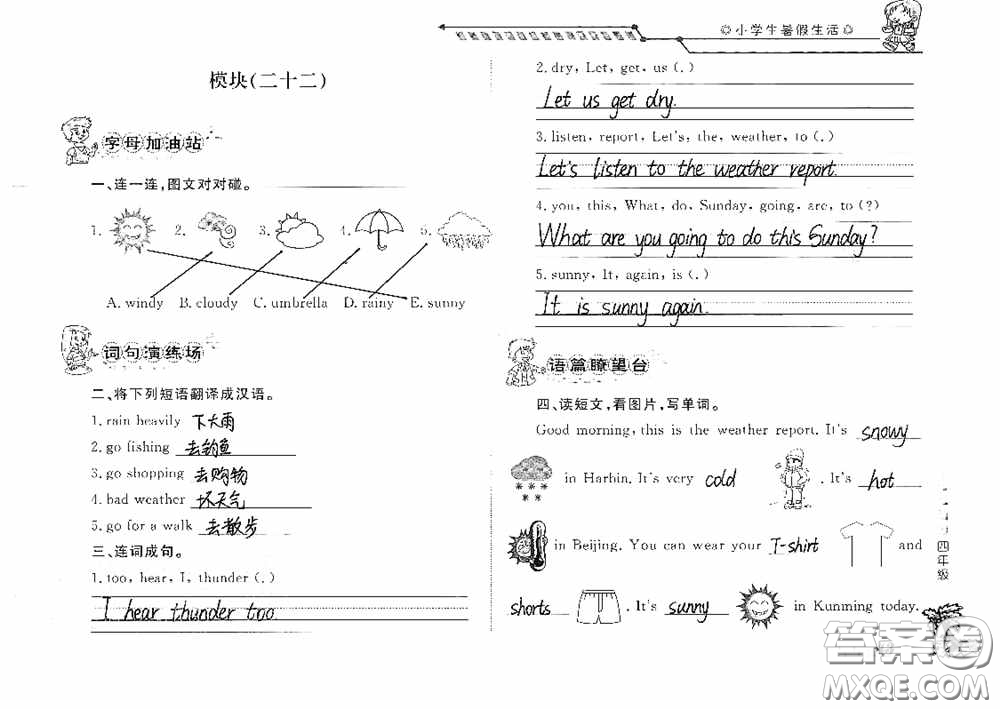 ◎小学生暑假生活◎
模块(二十二)
字母加油站
一、连一连,图文对对碰。
1. 2. 3. 4. 5.
A. windy B. cloudy C. umbrella D. rainy E. sunny
词句演练场
二、将下列短语翻译成汉语。
1. rain heavily 下大雨
2. go fishing 去钓鱼
3. go shopping 去购物
4. bad weather 坏天气
5. go for a walk 去散步
三、连词成句。
1. too, hear, I, thunder (.)
I hear thunder too
2. dry, Let, get, us (.)
Let us get dry.
3. listen, report, Let's, the, weather, to (.)
Let's listen to the weather report.
4. you, this, What, do, Sunday, going, are, to (?)
What are you going to do this Sunday?
5. sunny, It, again, is (.)
It is sunny again.
语篇瞭望台
四、读短文,看图片,写单词。
Good morning, this is the weather report. It's snowy
in Harbin. It's very cold . It's hot
in Beijing. You can wear your T-shirt and
shorts . It's sunny in Kunming today.
四年级
答案卷
MXQE.COM